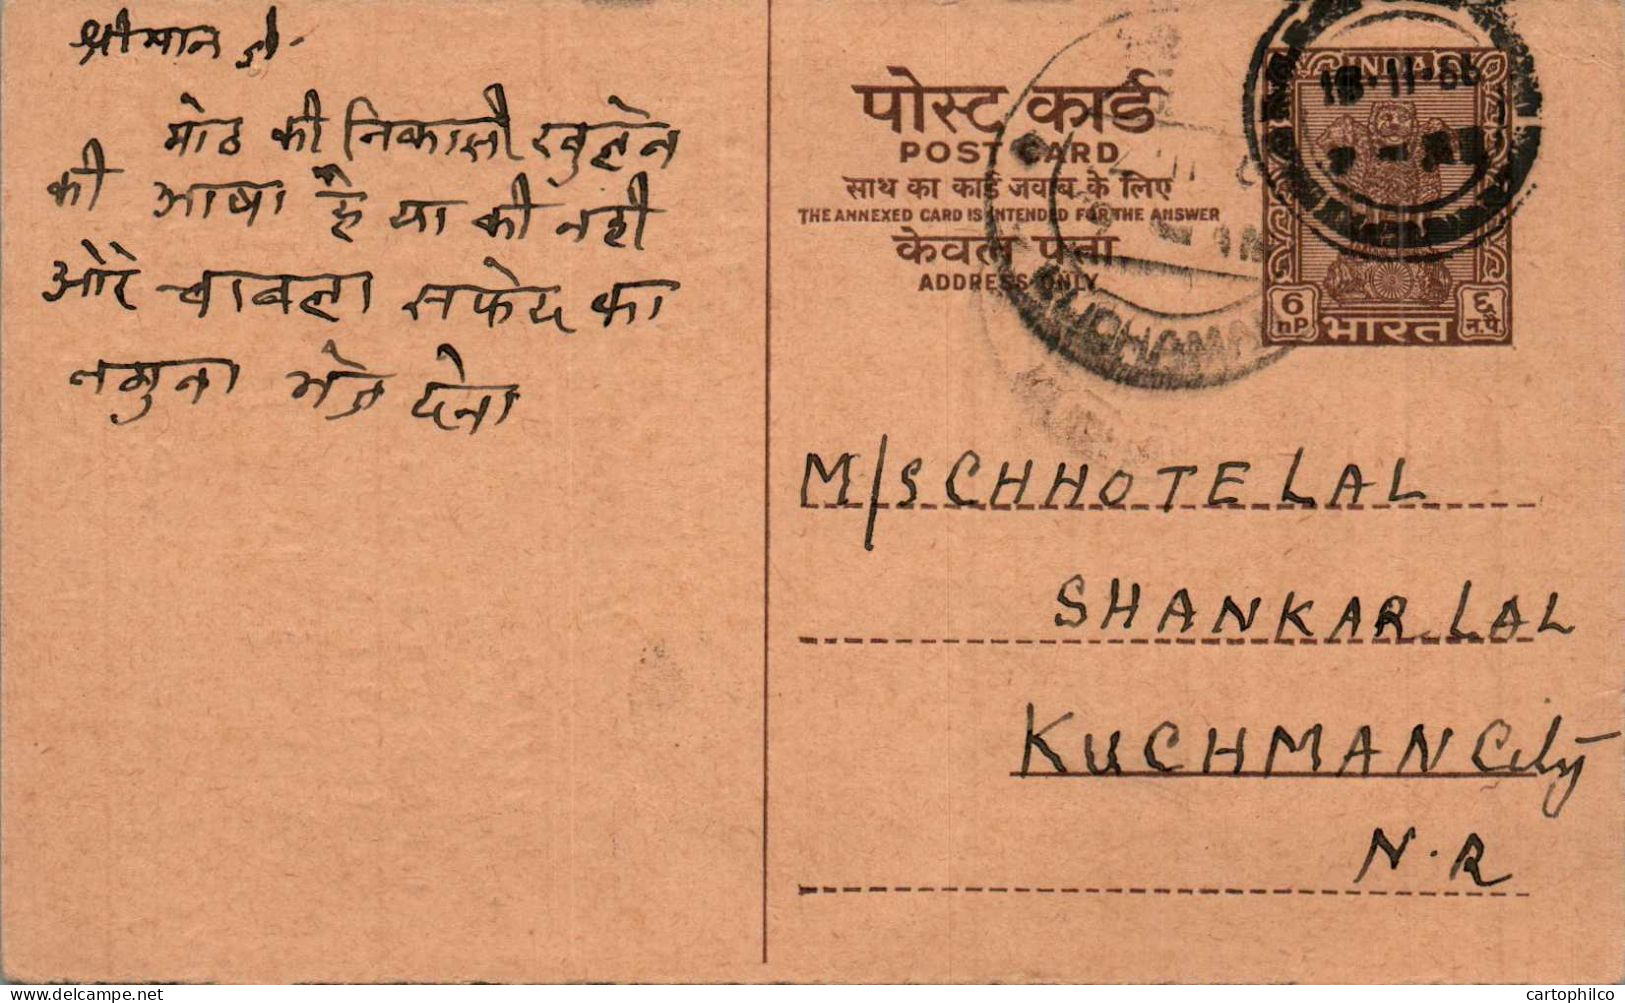 श्रीमान जी.
मोठ की निकासी खुलेन
की आषा है या की नही
ओर चावला सफेद का
नमुना भेज देना
पोस्ट कार्ड
POST CARD
साथ का कार्ड जवाब के लिए
THE ANNEXED CARD IS INTENDED FOR THE ANSWER
केवल पता
ADDRESS ONLY
INDIA
6 nP
६ न.पै.
भारत
18·11·66
M/S CHHOTE LAL
SHANKAR LAL
KUCHMAN City
N.R
cartophilco